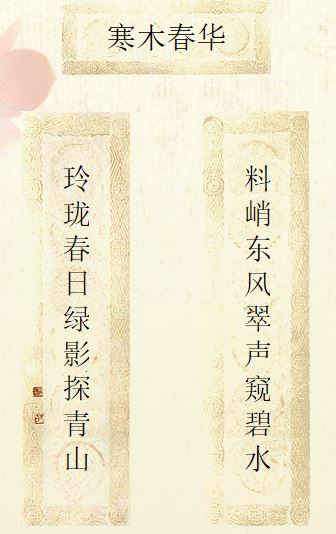 寒木春华
料峭东风翠声窥碧水
玲珑春日绿影探青山